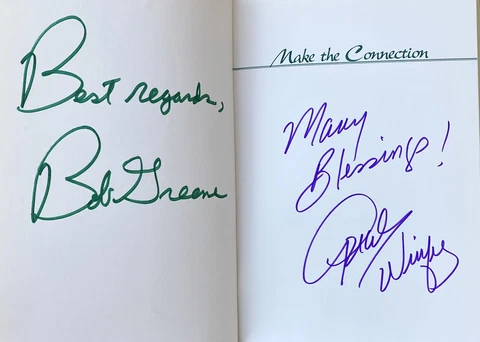 Best regards,
Bob Greene
Make the Connection
Many
Blessings!
Oprah
Winfrey